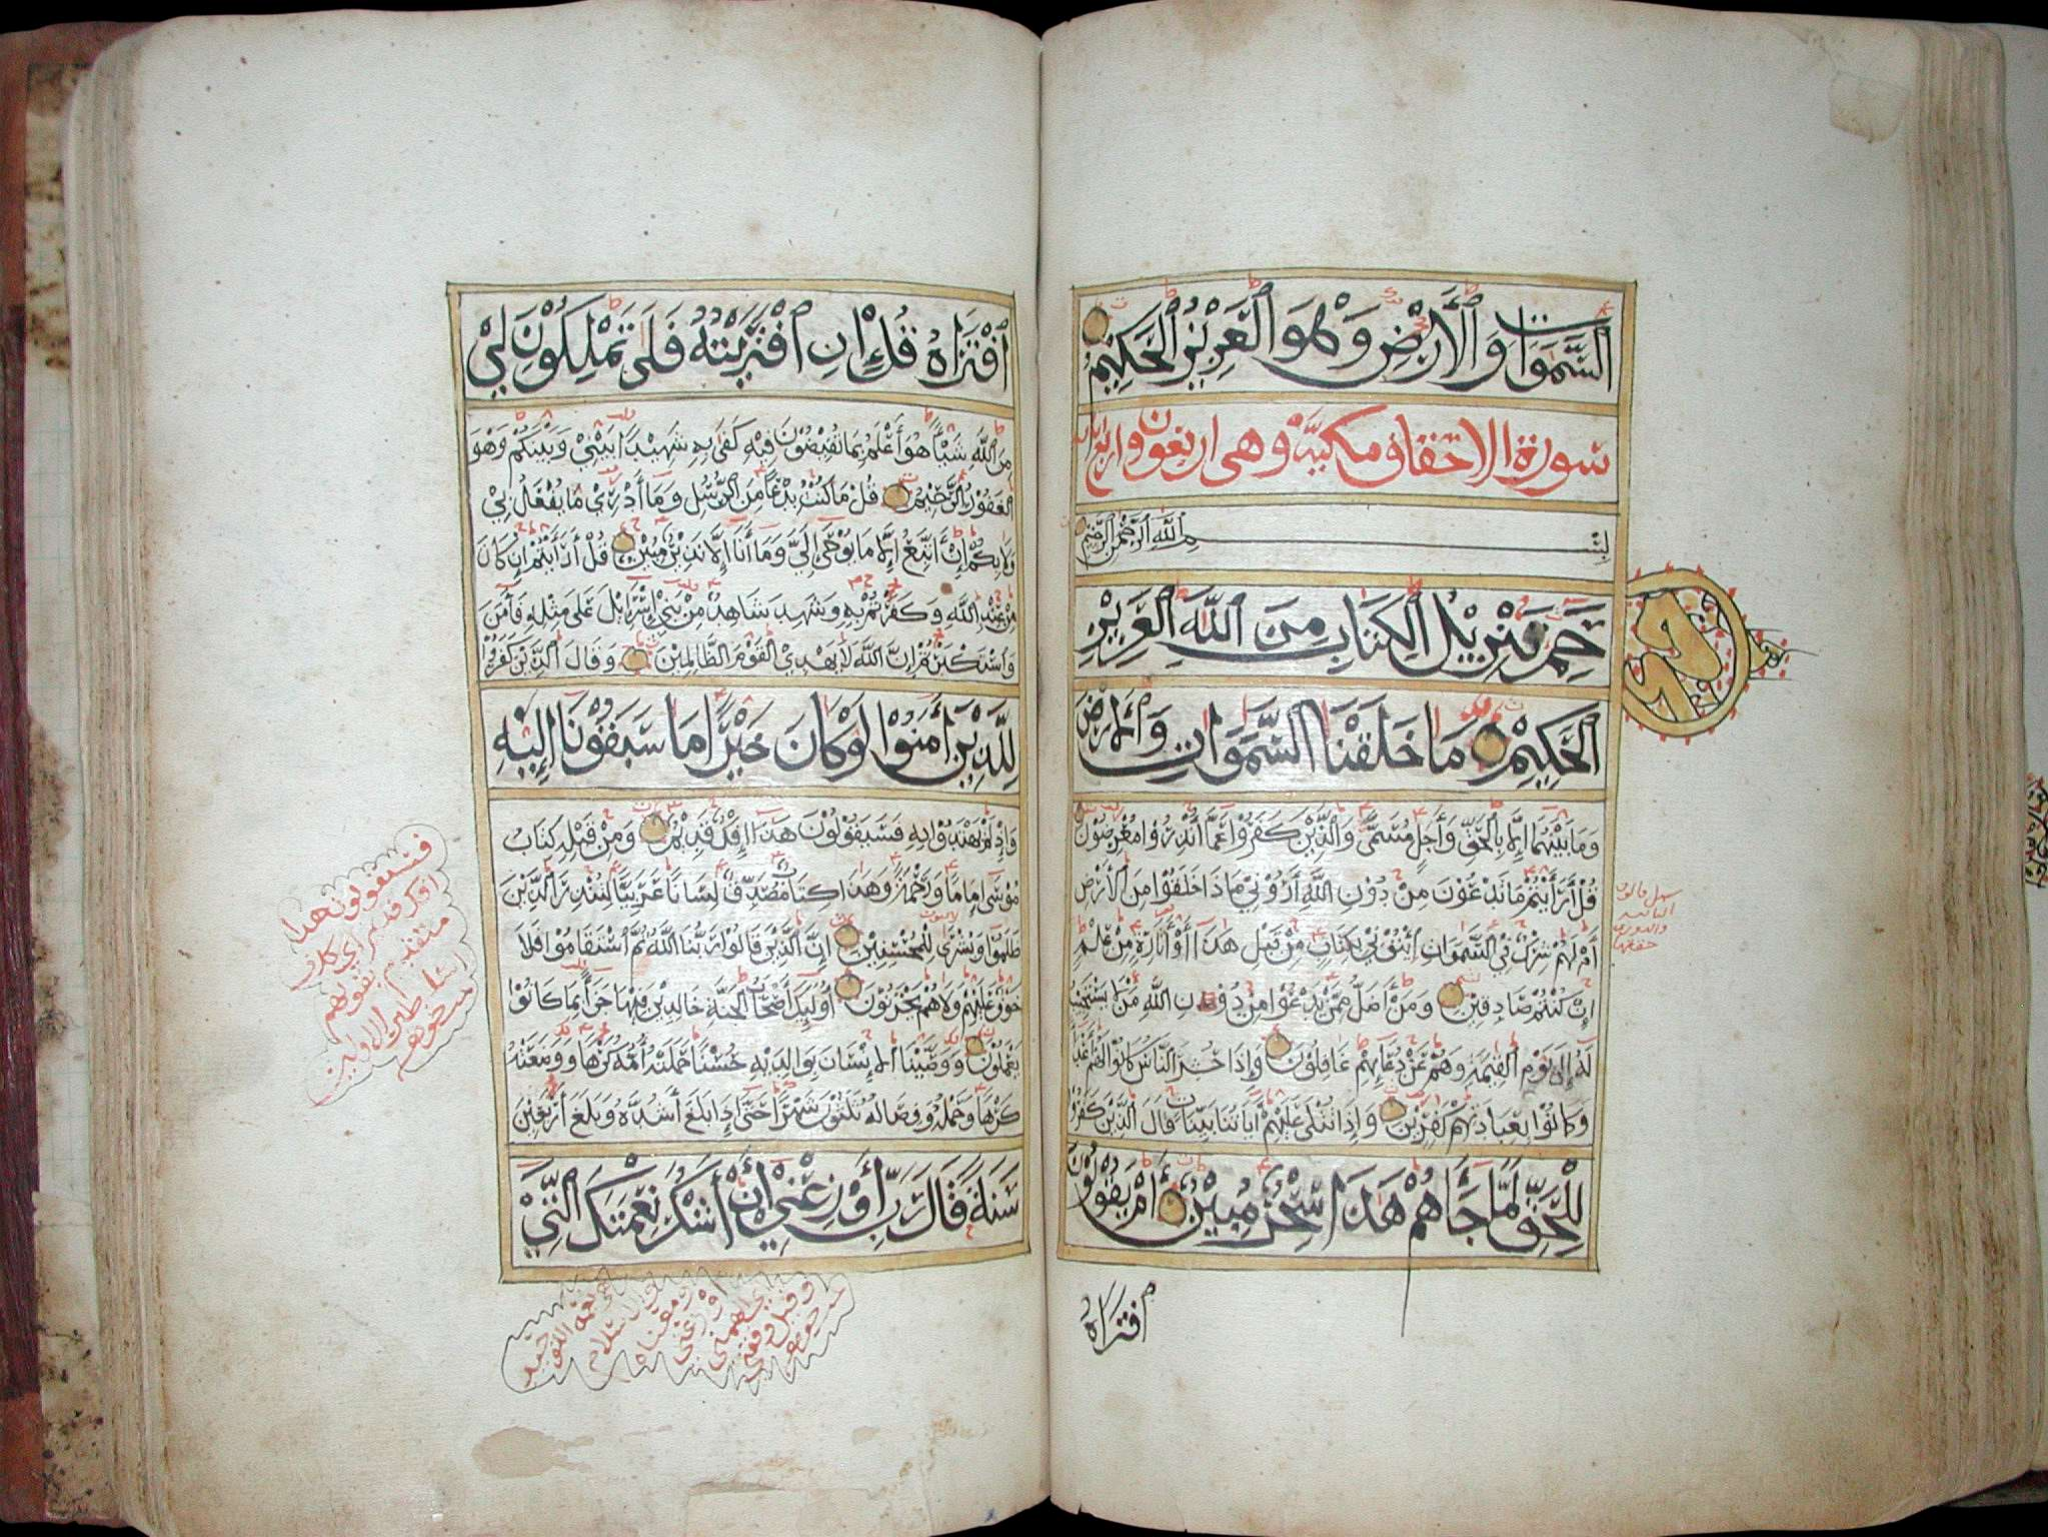 السَّمَوَاتِ وَالْأَرْضِ وَهُوَ الْعَزِيزُ الْحَكِيمُ
سورة الاحقاف مكية وهي اربعون واربع ايات
بِسْمِ اللَّهِ الرَّحْمٰنِ الرَّحِيمِ
حم تَنْزِيلُ الْكِتَابِ مِنَ اللَّهِ الْعَزِيزِ
الْحَكِيمِ مَا خَلَقْنَا السَّمَوَاتِ وَالْأَرْضَ
وَمَا بَيْنَهُمَا إِلَّا بِالْحَقِّ وَأَجَلٍ مُسَمًّى وَالَّذِينَ كَفَرُوا عَمَّا أُنْذِرُوا مُعْرِضُونَ
قُلْ أَرَأَيْتُمْ مَا تَدْعُونَ مِنْ دُونِ اللَّهِ أَرُونِي مَاذَا خَلَقُوا مِنَ الْأَرْضِ
أَمْ لَهُمْ شِرْكٌ فِي السَّمَوَاتِ ائْتُونِي بِكِتَابٍ مِنْ قَبْلِ هَذَا أَوْ أَثَارَةٍ مِنْ عِلْمٍ
إِنْ كُنْتُمْ صَادِقِينَ وَمَنْ أَضَلُّ مِمَّنْ يَدْعُوا مِنْ دُونِ اللَّهِ مَنْ لَا يَسْتَجِيبُ
لَهُ إِلَى يَوْمِ الْقِيمَةِ وَهُمْ عَنْ دُعَائِهِمْ غَافِلُونَ وَإِذَا حُشِرَ النَّاسُ كَانُوا لَهُمْ أَعْدَاءً
وَكَانُوا بِعِبَادَتِهِمْ كَفِرِينَ وَإِذَا تُتْلَى عَلَيْهِمْ آيَاتُنَا بَيِّنَاتٍ قَالَ الَّذِينَ كَفَرُوا
لِلْحَقِّ لَمَّا جَاءَهُمْ هَذَا سِحْرٌ مُبِينٌ أَمْ يَقُولُونَ
افْتَرَاهُ
افْتَرَاهُ قُلْ إِنِ افْتَرَيْتُهُ فَلَا تَمْلِكُونَ لِي
مِنَ اللَّهِ شَيْئًا هُوَ أَعْلَمُ بِمَا تُفِيضُونَ فِيهِ كَفَى بِهِ شَهِيدًا بَيْنِي وَبَيْنَكُمْ وَهُوَ
الْغَفُورُ الرَّحِيمُ قُلْ مَا كُنْتُ بِدْعًا مِنَ الرُّسُلِ وَمَا أَدْرِي مَا يُفْعَلُ بِي
وَلَا بِكُمْ إِنْ أَتَّبِعُ إِلَّا مَا يُوحَى إِلَيَّ وَمَا أَنَا إِلَّا نَذِيرٌ مُبِينٌ قُلْ أَرَأَيْتُمْ إِنْ كَانَ
مِنْ عِنْدِ اللَّهِ وَكَفَرْتُمْ بِهِ وَشَهِدَ شَاهِدٌ مِنْ بَنِي إِسْرَائِلَ عَلَى مِثْلِهِ فَآمَنَ
وَاسْتَكْبَرْتُمْ إِنَّ اللَّهَ لَا يَهْدِي الْقَوْمَ الظَّالِمِينَ وَقَالَ الَّذِينَ كَفَرُوا
لِلَّذِينَ آمَنُوا لَوْ كَانَ خَيْرًا مَا سَبَقُونَا إِلَيْهِ
وَإِذْ لَمْ يَهْتَدُوا بِهِ فَسَيَقُولُونَ هَذَا إِفْكٌ قَدِيمٌ وَمِنْ قَبْلِهِ كِتَابُ
مُوسَى إِمَامًا وَرَحْمَةً وَهَذَا كِتَابٌ مُصَدِّقٌ لِسَانًا عَرَبِيًّا لِتُنْذِرَ الَّذِينَ
ظَلَمُوا وَبُشْرَى لِلْمُحْسِنِينَ إِنَّ الَّذِينَ قَالُوا رَبُّنَا اللَّهُ ثُمَّ اسْتَقَامُوا فَلَا
خَوْفٌ عَلَيْهِمْ وَلَا هُمْ يَحْزَنُونَ أُولَئِكَ أَصْحَابُ الْجَنَّةِ خَالِدِينَ فِيهَا جَزَاءً بِمَا كَانُوا
يَعْمَلُونَ وَوَصَّيْنَا الْإِنْسَانَ بِوَالِدَيْهِ حُسْنًا حَمَلَتْهُ أُمُّهُ كَرْهًا وَوَضَعَتْهُ
كَرْهًا وَحَمْلُهُ وَفِصَالُهُ ثَلَثُونَ شَهْرًا حَتَّى إِذَا بَلَغَ أَشُدَّهُ وَبَلَغَ أَرْبَعِينَ
سَنَةً قَالَ رَبِّ أَوْزِعْنِي أَنْ أَشْكُرَ نِعْمَتَكَ الَّتِي
فسيقولون هذا
افك قديم اي كذب
متقدم
اساطير الاولين